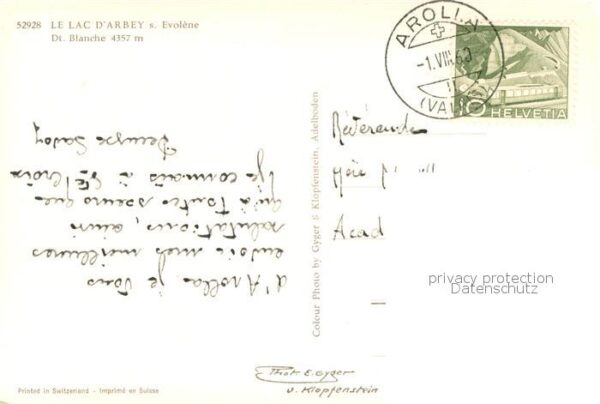 52928 LE LAC D'ARBEY s. Evolène
Dt. Blanche 4357 m
AROLLA
-1.VIII.60
(VALAIS)
10 HELVETIA
d'Arolla je vous
envoie mes meilleures
salutations, ainsi
qu'à toutes soeurs que
je connais à Ste Croix
Savoy
Révérende
Mère
Colour Photo by Gyger & Klopfenstein, Adelboden
privacy protection
Datenschutz
Phot. E. Gyger
u. Klopfenstein
Printed in Switzerland - Imprimé en Suisse